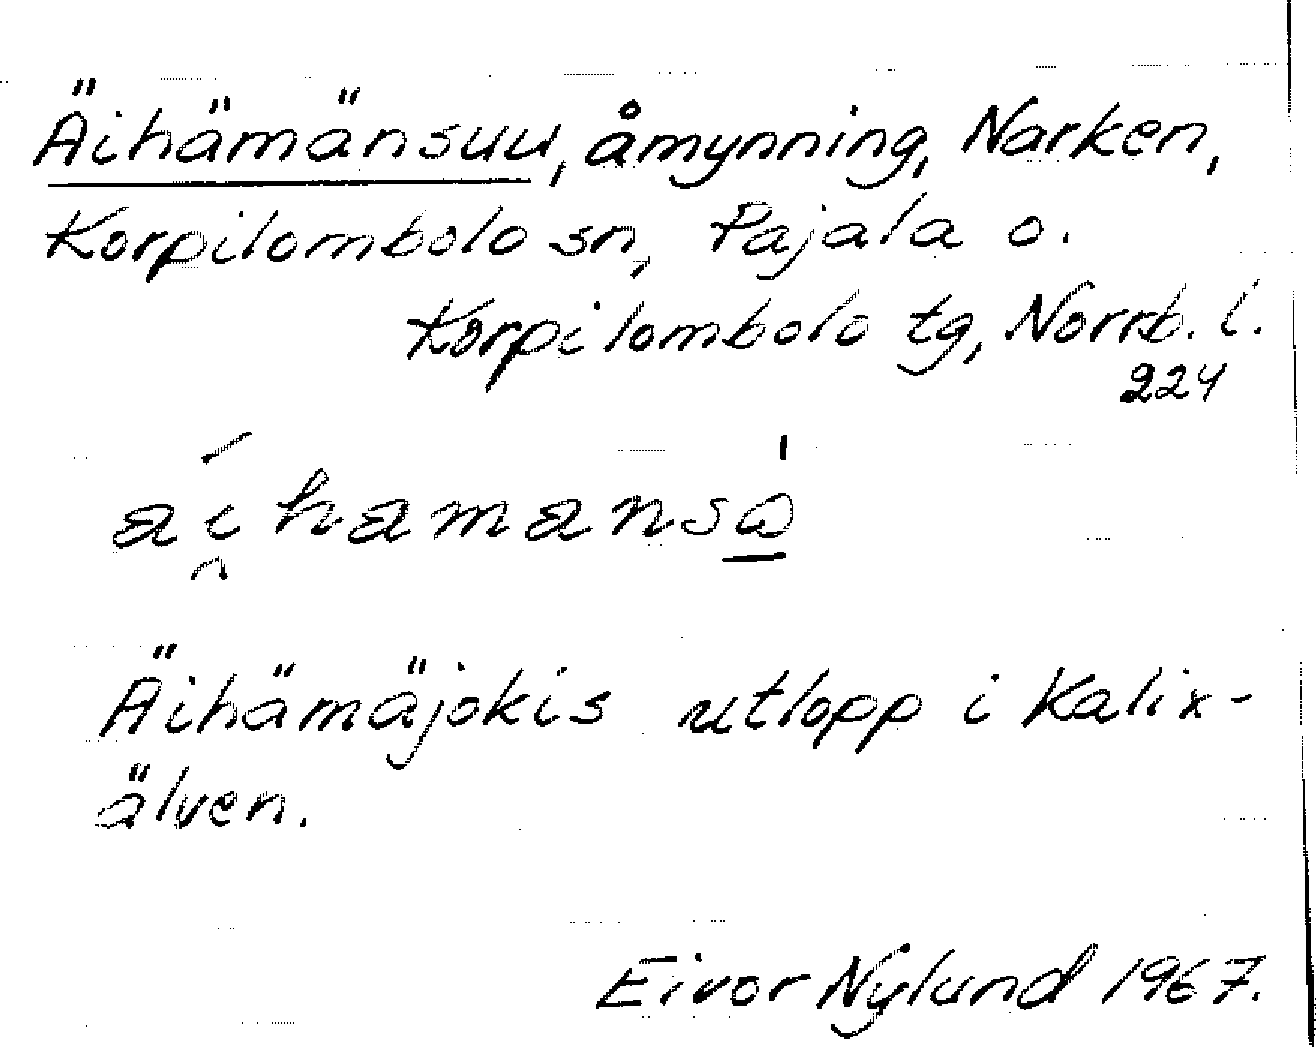 Äihämänsuu, åmynning, Narken,
Korpilombolo sn, Pajala o.
Korpilombolo tg, Norrb. l.
224
ai̯hamansω̱
Äihämäjokis utlopp i Kalix-
älven.
Eivor Nylund 1967.